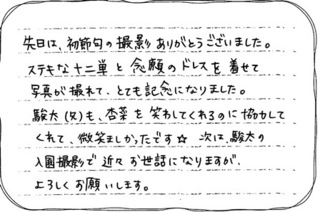 先日は、初節句の撮影ありがとうございました。
ステキな十二単と念願のドレスを着せて
写真が撮れて、とても記念になりました。
駿太(兄)も、杏菜を笑わしてくれるのに協力して
くれて、微笑ましかったです☆ 次は、駿太の
入園撮影で近々お世話になりますが、
よろしくお願いします。